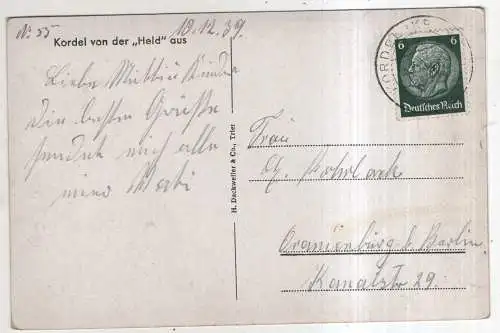 No 55
18.12.39
Kordel von der „Held" aus
Liebe Mutti u. Kinder
die besten Grüße
sendet euch alle
H. Dackweiler & Co., Trier
6 6
Deutsches Reich
KORDEL
Frau
Oranienburg b. Berlin
Kanalstr 29.